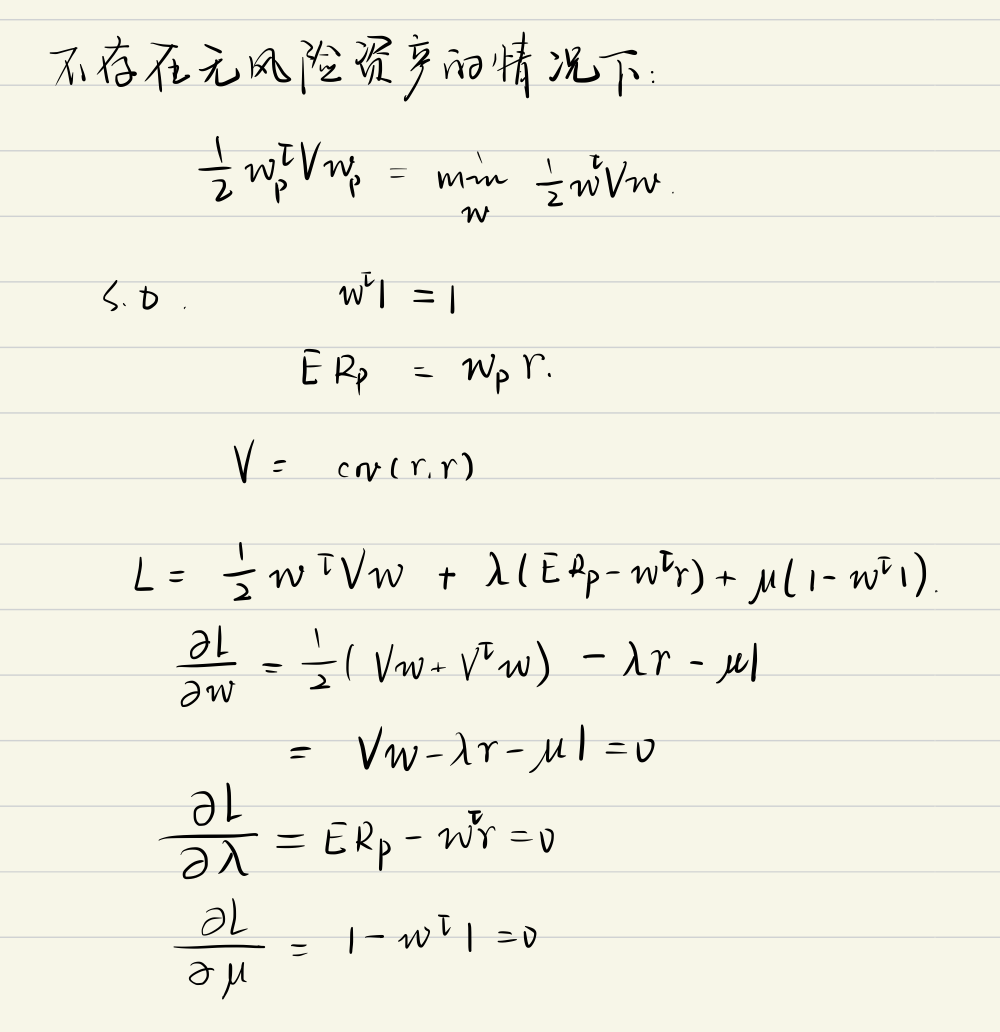 不存在无风险资产的情况下:
1/2 w_p^τ V w_p = min_w 1/2 w^τ V w.
s.t. w^τ 1 = 1
E R_p = w_p r.
V = cov(r, r)
L = 1/2 w^τ V w + λ(E R_p - w^τ r) + μ(1 - w^τ 1).
∂L/∂w = 1/2 (Vw + V^τ w) - λr - μ1
= Vw - λr - μ1 = 0
∂L/∂λ = E R_p - w^τ r = 0
∂L/∂μ = 1 - w^τ 1 = 0